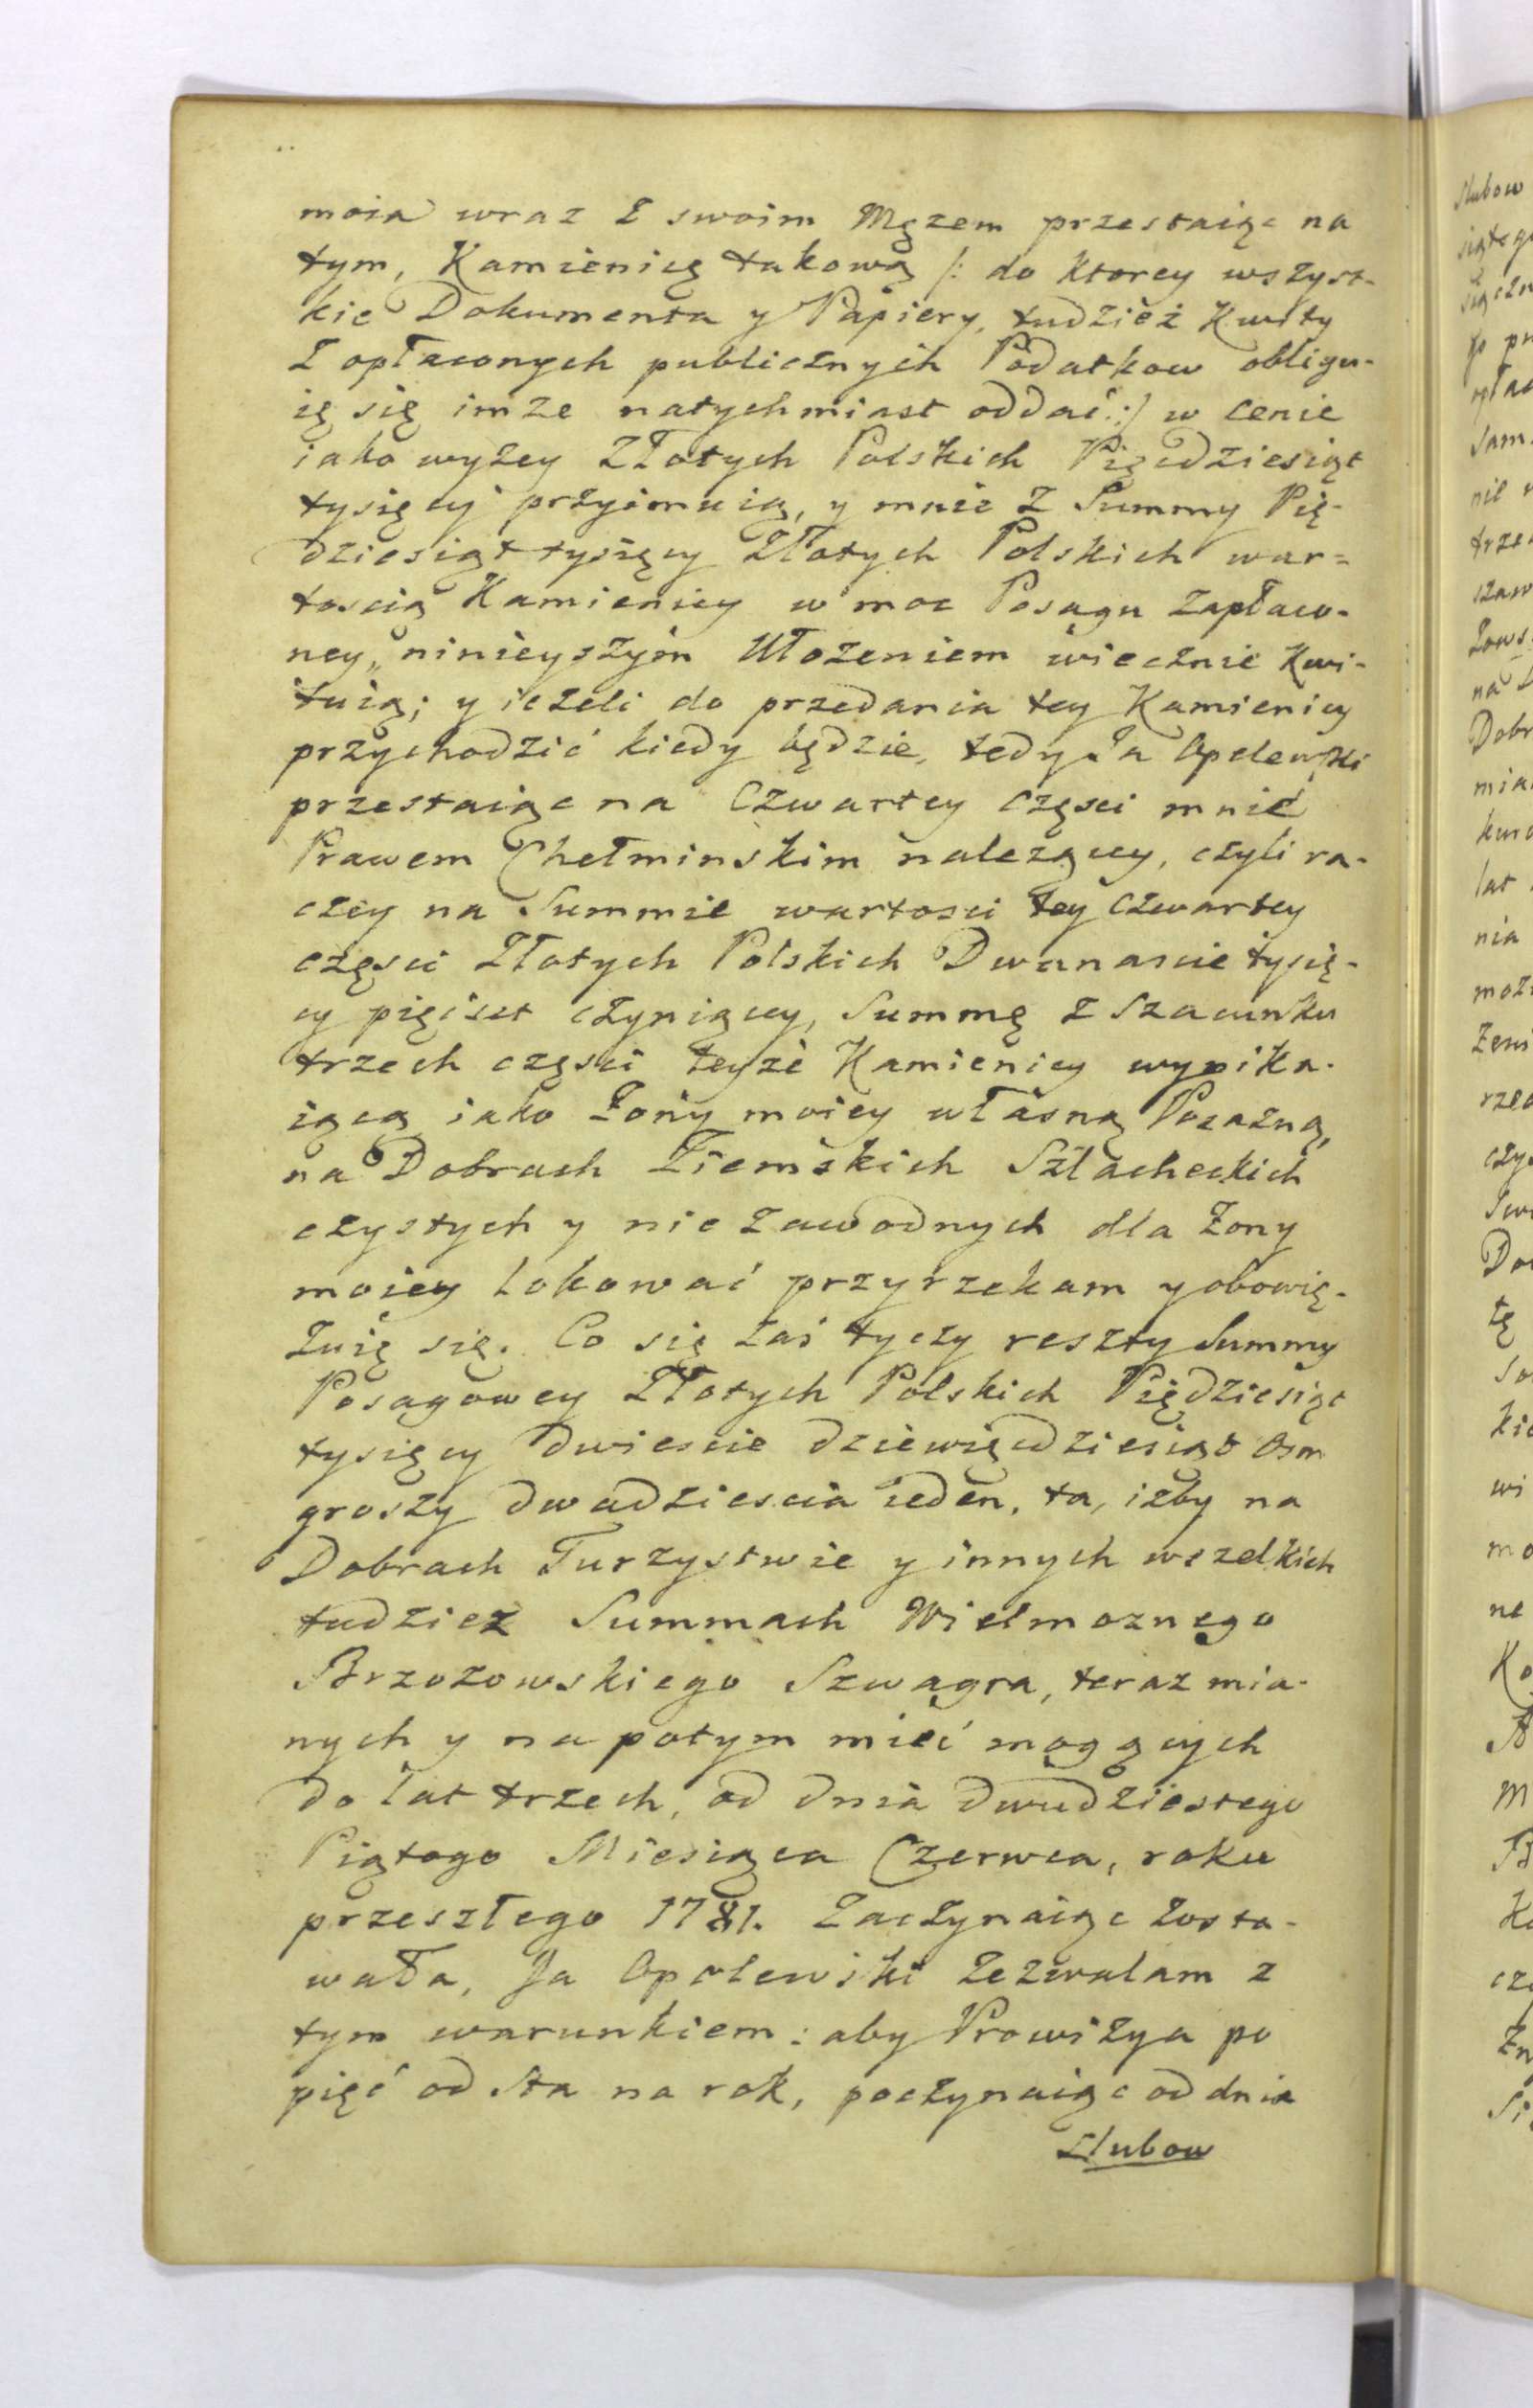 moia wraz z swoim Męzem przestaiąc na
tym, Kamienicę takową /: do ktorey wszyst-
kie Dokumenta y Papiery, tudzież Kwity
z opłaconych publicznych Podatkow obligu-
ię się imze natychmiast oddać :/ w cenie
iako wyżey Złotych Polskich Pięcdziesiąt
tysięcy przyimuią, y mnie z Summy Pię-
dziesiąt tysięcy Złotych Polskich war=
toscią Kamienicy w moc Posagu zapłaco-
ney, ninieyszym Ułozeniem wiecznie Kwi-
tuią; y ieżeli do przedania tey Kamienicy
przychodzić kiedy będzie, tedy Ja Opelewski
przestaiąc na Czwartey częsci mnie
Prawem Chełminskim nalezącey, czyli ra-
czey na Summie wartosci tey czwartey
częsci Złotych Polskich Dwanascie tysię-
cy pięcset czyniącey, Summę z Szacunku
trzech częsci teyże Kamienicy wynika-
iącą iako Żony moiey własną Posażną,
na Dobrach Ziemskich Szlacheckich
czystych y nie zawodnych dla Żony
moiey lokować przyrzekam y obowię-
zuię się. Co się zaś tyczy reszty Summy
Posagowey Złotych Polskich Piędziesiąt
tysięcy dwiescie dziewięcdziesiąt Osm
groszy dwadziescia ieden, ta, iżby na
Dobrach Turzystwie y innych wszelkich
tudziez Summach Wielmoznego
Brzozowskiego Szwagra, teraz mia-
nych y na potym mieć mogących
do lat trzech, od dnia dwudziestego
Piątego Miesiąca Czerwca, roku
przeszłego 1781. zaczynaiąc zosta-
wała, Ja Opelewski zezwalam z
tym warunkiem: aby Prowizya po
pięć od sta na rok, poczynaiąc od dnia
Slubow